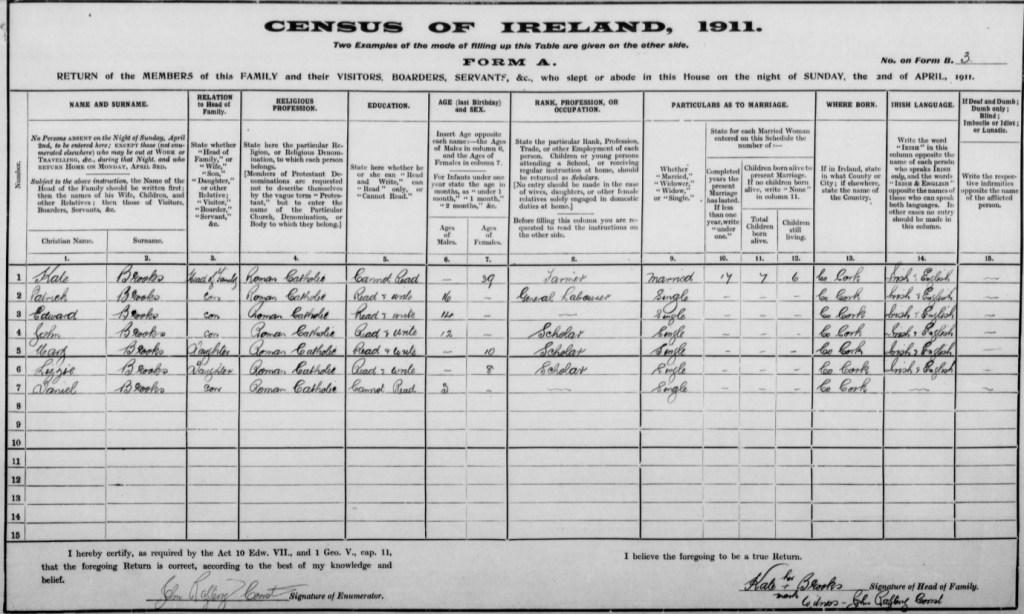 CENSUS OF IRELAND, 1911.
Two Examples of the mode of filling up this Table are given on the other side.
FORM A.
No. on Form B. 3
RETURN of the MEMBERS of this FAMILY and their VISITORS, BOARDERS, SERVANTS, &c., who slept or abode in this House on the night of SUNDAY, the 2nd of APRIL, 1911.
Number.
NAME AND SURNAME.
No Persons ABSENT on the Night of Sunday, April 2nd, to be entered here; EXCEPT those (not enumerated elsewhere) who may be out at WORK or TRAVELLING, &c., during that Night, and who RETURN HOME ON MONDAY, APRIL 3RD.
Subject to the above instruction, the Name of the Head of the Family should be written first; then the names of his Wife, Children, and other Relatives; then those of Visitors, Boarders, Servants, &c.
Christian Name.
Surname.
RELATION to Head of Family.
State whether "Head of Family," or "Wife," "Son," "Daughter," or other Relative; "Visitor," "Boarder," "Servant," &c.
RELIGIOUS PROFESSION.
State here the particular Religion, or Religious Denomination, to which each person belongs.
[Members of Protestant Denominations are requested not to describe themselves by the vague term "Protestant," but to enter the name of the Particular Church, Denomination, or Body to which they belong.]
EDUCATION.
State here whether he or she can "Read and Write," can "Read" only, or "Cannot Read."
AGE (last Birthday) and SEX.
Insert Age opposite each name:—the Ages of Males in column 6, and the Ages of Females in column 7.
For Infants under one year state the age in months, as "under 1 month," "1 month," "2 months," &c.
Ages of Males.
Ages of Females.
RANK, PROFESSION, OR OCCUPATION.
State the particular Rank, Profession, Trade, or other Employment of each person. Children or young persons attending a School, or receiving regular instruction at home, should be returned as Scholars.
[No entry should be made in the case of wives, daughters, or other female relatives solely engaged in domestic duties at home.]
Before filling this column you are requested to read the instructions on the other side.
PARTICULARS AS TO MARRIAGE.
Whether "Married," "Widower," "Widow," or "Single."
State for each Married Woman entered on this Schedule the number of:—
Completed years the present Marriage has lasted. If less than one year, write "under one."
Children born alive to present Marriage. If no children born alive, write "None" in column 11.
Total Children born alive.
Children still living.
WHERE BORN.
If in Ireland, state in what County or City; if elsewhere, state the name of the Country.
IRISH LANGUAGE.
Write the word "IRISH" in this column opposite the name of each person who speaks IRISH only, and the words "IRISH & ENGLISH" opposite the names of those who can speak both languages. In other cases no entry should be made in this column.
If Deaf and Dumb; Dumb only; Blind; Imbecile or Idiot; or Lunatic.
Write the respective infirmities opposite the name of the afflicted person.
1. 2. 3. 4. 5. 6. 7. 8. 9. 10. 11. 12. 13. 14. 15.
1 Kate Brooks Head of Family Roman Catholic Cannot Read — 39 Farmer Married 17 7 6 Co Cork Irish & English
2 Patrick Brooks Son Roman Catholic Read & write 16 — General Labourer Single — — — Co Cork Irish & English
3 Edward Brooks Son Roman Catholic Read & write 14 — — Single — — — Co Cork Irish & English
4 John Brooks Son Roman Catholic Read & write 12 — Scholar Single — — — Co Cork Irish & English
5 Mary Brooks Daughter Roman Catholic Read & write — 10 Scholar Single — — — Co Cork Irish & English
6 Lizzie Brooks Daughter Roman Catholic Read & write — 8 Scholar Single — — — Co Cork Irish & English
7 Daniel Brooks Son Roman Catholic Cannot Read 3 — — Single — — — Co Cork —
8
9
10
11
12
13
14
15
I hereby certify, as required by the Act 10 Edw. VII., and 1 Geo. V., cap. 11,
that the foregoing Return is correct, according to the best of my knowledge and
belief.
John Const Signature of Enumerator.
I believe the foregoing to be a true Return.
Kate her + mark Brooks Signature of Head of Family.
John Const